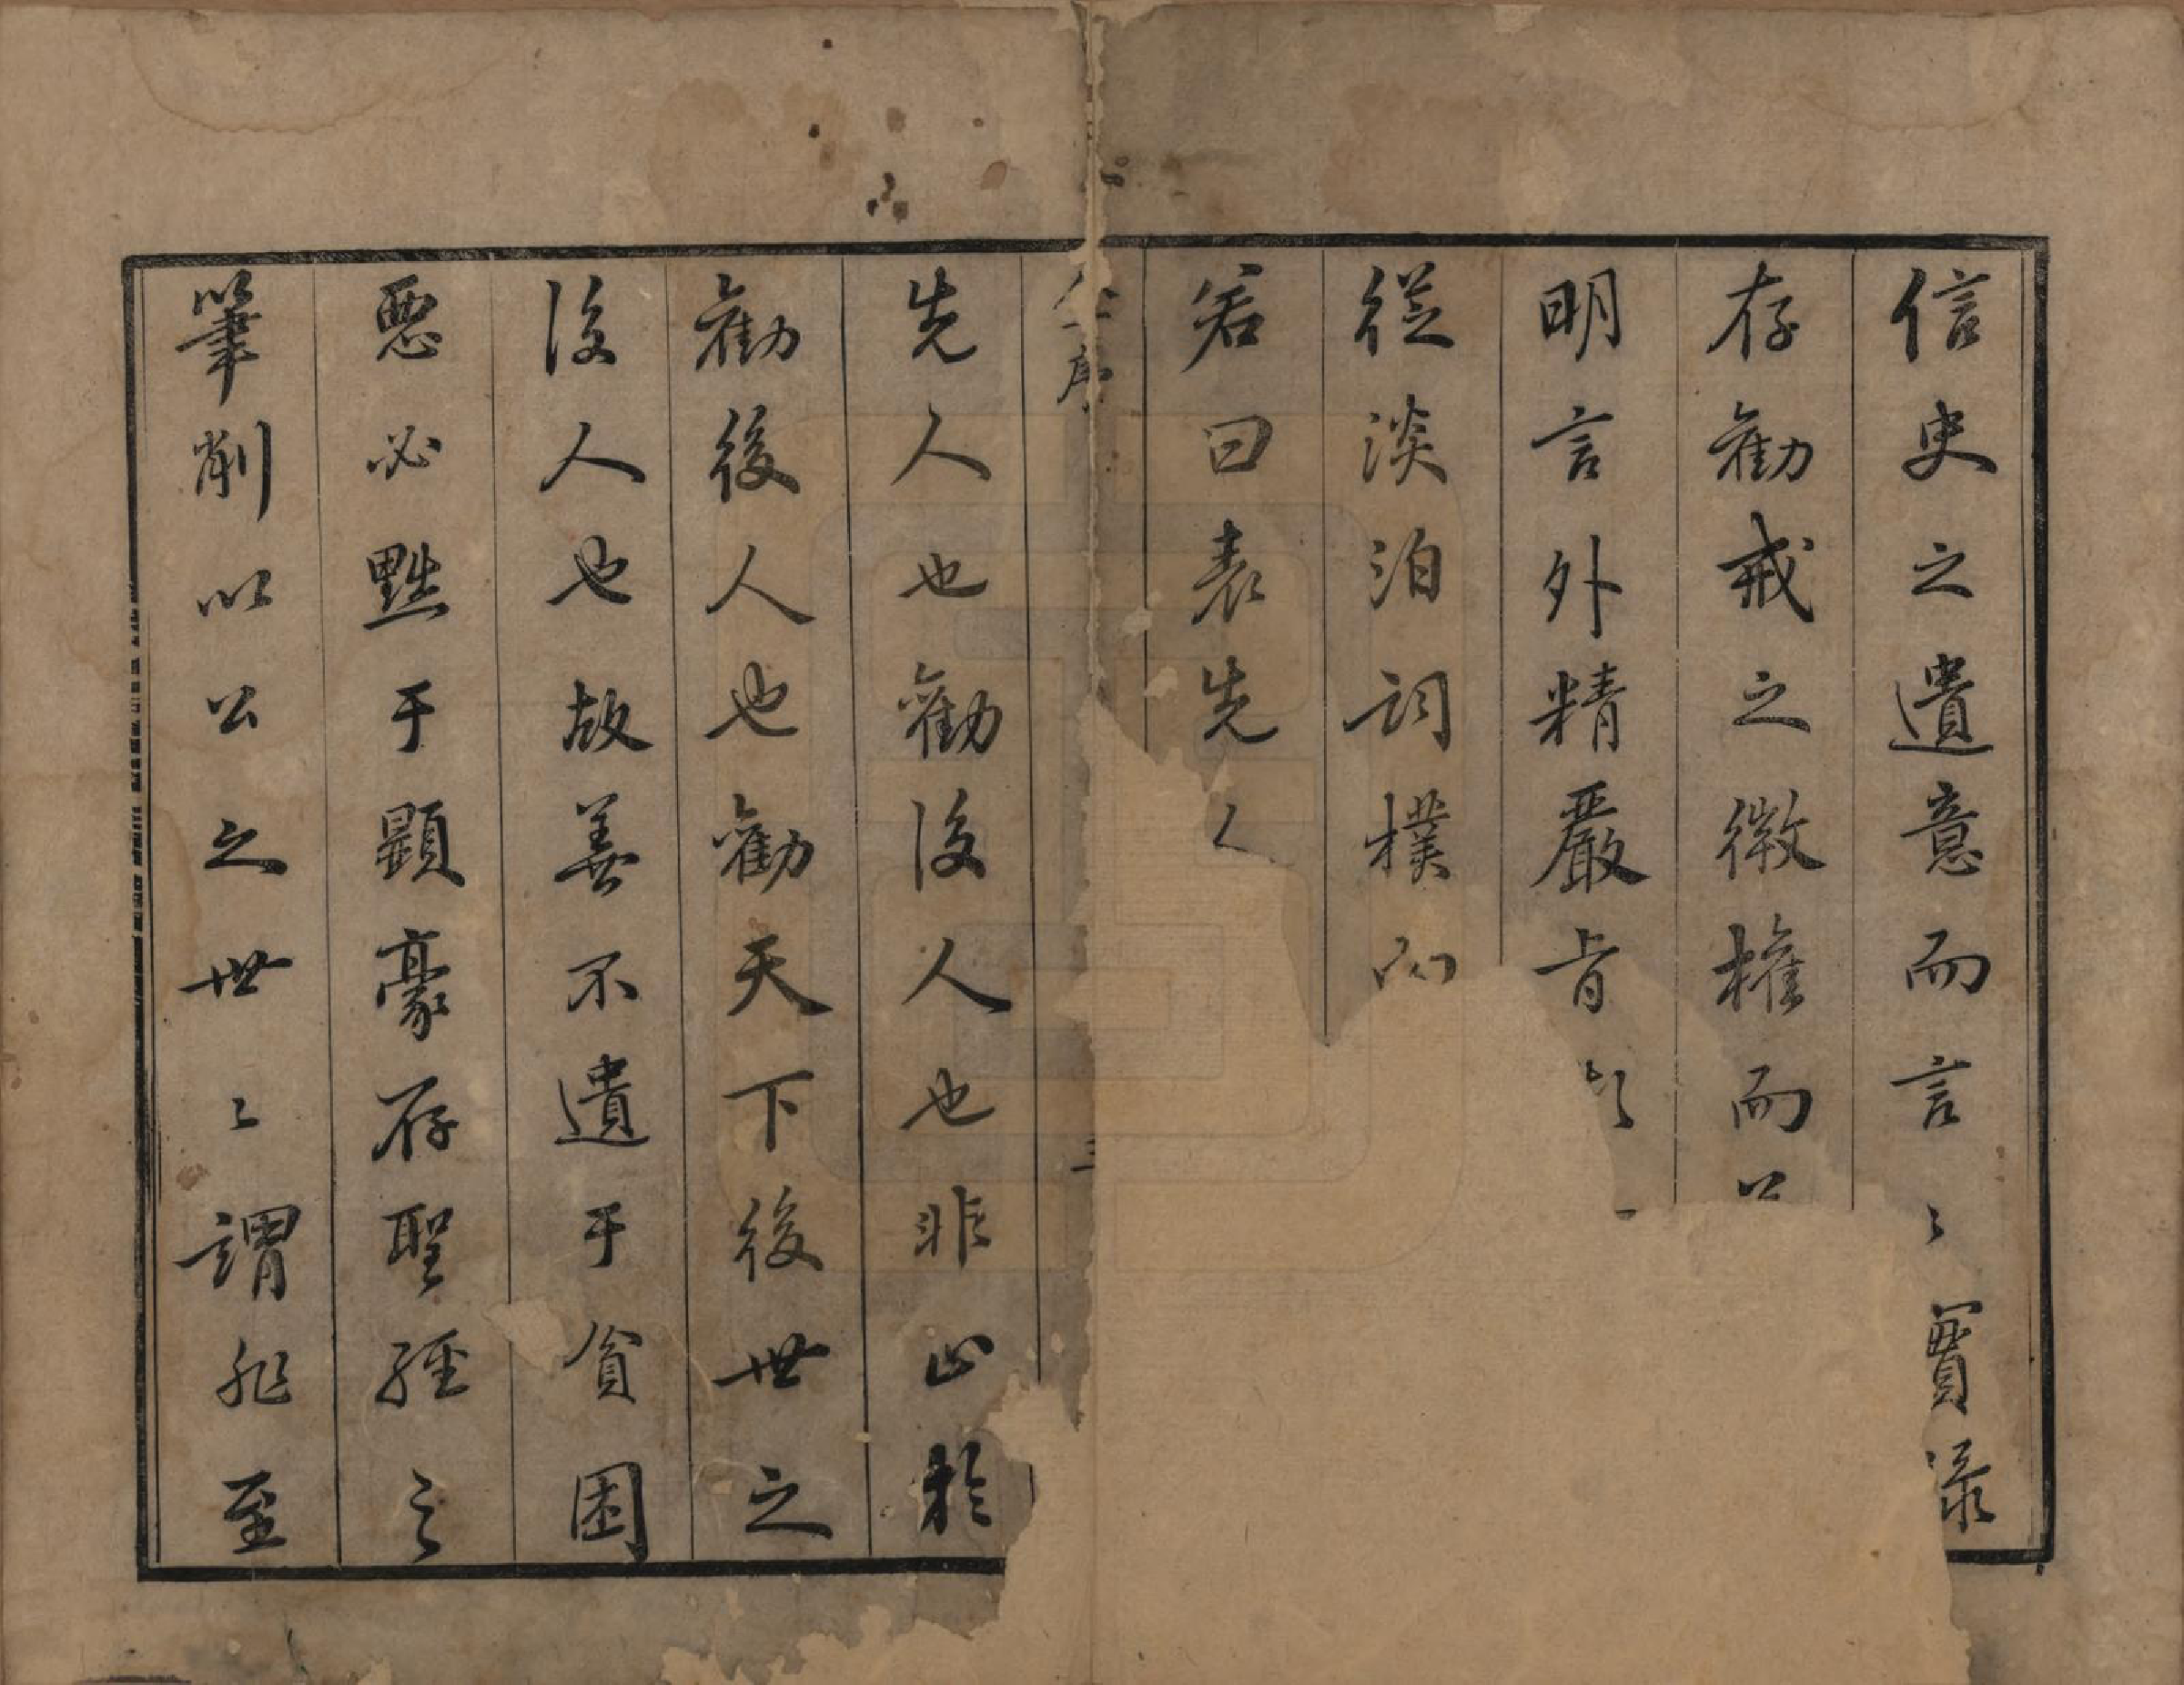 信史之遺意而言〻實录
存勸戒之微權而
明言外精嚴旨
從淡泊詞樸而
君曰表先人
序
先人也勸後人也非止於
勸後人也勸天下後世之
後人也故善不遺于貧困
惡必黜于顯豪存聖經之
筆削以公之世〻謂非至